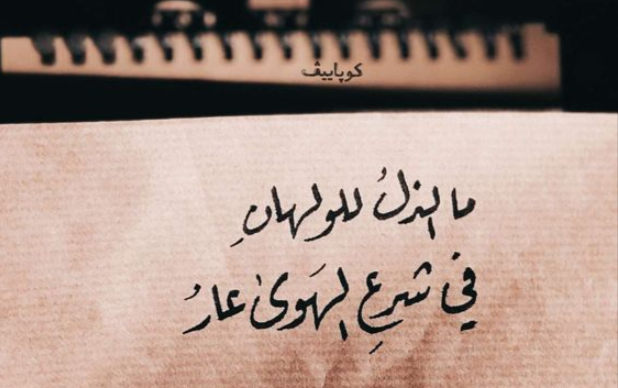 كوپاييڤ
ما الذلُ للولهانِ
في شرعِ الهَوىٰ عارُ